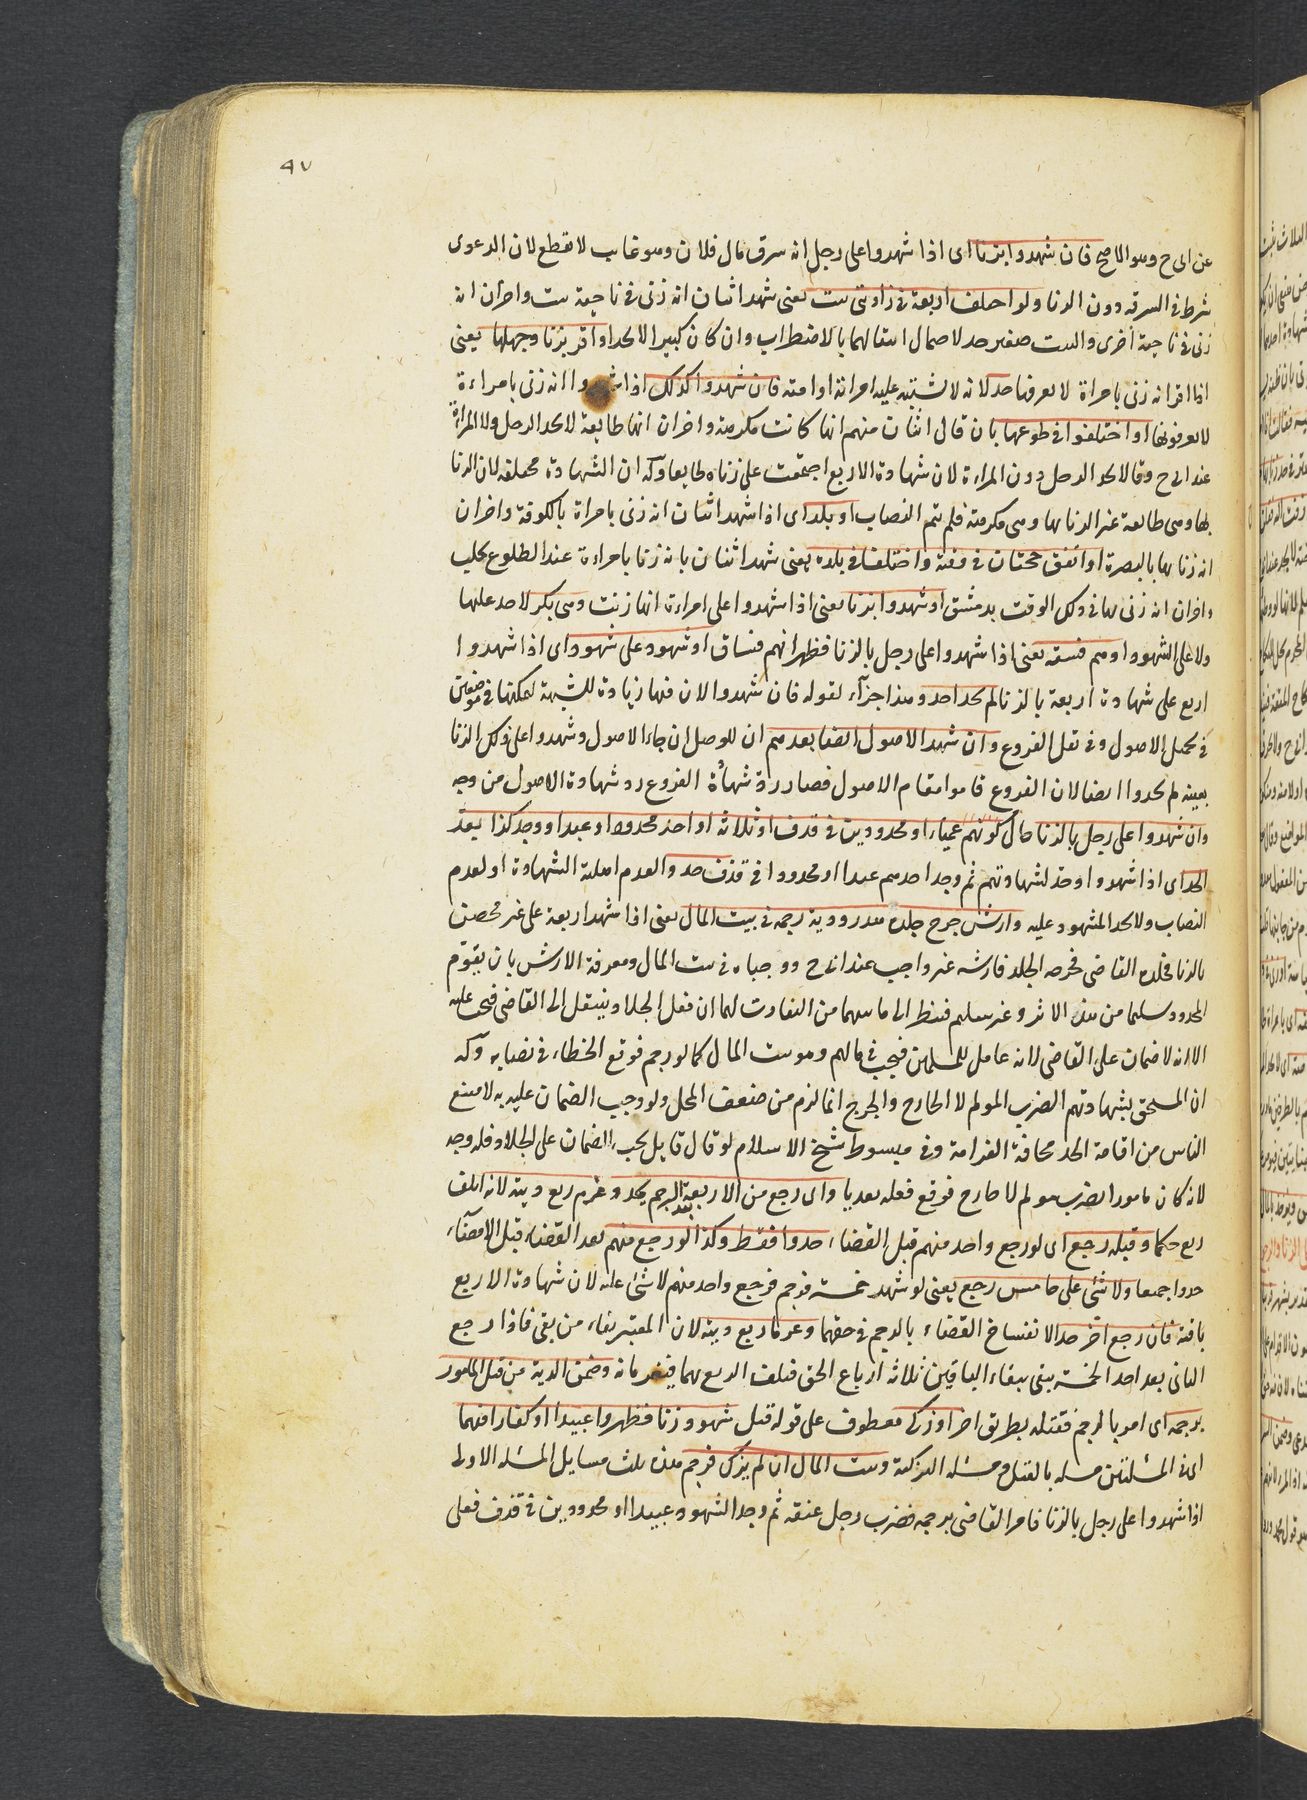 ٩٧
عن ابى ح وهو الاصح فان شهدوا بزنا اى اذا شهدوا على رجل انه سرق مال فلان وهو غايب لا يقطع لان الدعوى
شرط فى السرقه دون الزنا ولو اختلف اربعة فى زاويتى بيت يعنى شهد اثنان انه زنى فى ناحية بيت واخران انه
زنى فى ناحية أخرى والبيت صغير حد لاحتمال انتقالهما بالاضطراب وان كان كبيرا لا يحد او اقر بزنا وجهلها يعنى
اذا اقر انه زنى بامراة لا يعرفها حد لانه لا يشتبه عليه امراته او امته فان شهدوا كذلك اذا شهدوا انه زنى بامراءة
لا يعرفونها او اختلفوا فى طوعها بان قال اثنان منهم انها كانت مكرهة واخران انها طايعة لا يحد الرجل ولا المراة
عند ابى ح وقالا يحد الرجل دون المراءة لان شهادة الاربع اجتمعت على زناه طايعا وله ان الشهادة مختلفه لان الزنا
بها وهى طايعة غير الزنا بها وهى مكرهة فلم يتم النصاب او بلد اى اذا شهد اثنان انه زنى بامراة بالكوفة واخران
انه زنا بها بالبصرة او اتفق حجتان فى وقته واختلفا فى بلده يعنى شهد اثنان بانه زنا بامراءة عند الطلوع بحلب
واخران انه زنى بها فى ذلك الوقت بدمشق او شهدوا بزنا يعنى اذا شهدوا على امراءة انها زنت وهى بكر لا حد عليها
ولا على الشهود او هم فسقه يعنى اذا شهدوا على رجل بالزنا فظهر انهم فساق او شهود على شهود اى اذا شهدوا
اربع على شهادة اربعة بالزنا لم يحد احد وهذا جزآء لقوله فان شهدوا لان فيها زيادة للشبهة لتمكنها فى موضعين
فى تحمل الاصول وفى نقل الفروع وان شهد الاصول ايضا بعدهم ان للوصل ان جاء الاصول وشهدوا على ذلك الزنا
بعينه لم يحدوا ايضا لان الفروع قاموا مقام الاصول فصار ردة شهادة الفروع رد شهادة الاصول من وجه
وان شهدوا على رجل بالزنا حال كونهم عمياء او محدودين فى قذف او ثلاثه او احد محدود او عبدا او وجد كذا بعد
الحد اى اذا شهدوا وحد لشهادتهم ثم وجد احدهم عبدا او محدودا فى قذف حد والعدم اهلية الشهادة او لعدم
النصاب ولا يحد المشهود عليه وارش جرح جلده هدر ودية رجمه فى بيت المال يعنى اذا شهد اربعة على غير محصن
بالزنا فجلده القاضى فجرحه الجلد فارشه غير واجب عند ابى ح ووجباه فى بيت المال ومعرفة الارش بان يقوّم
المحدود سليما من هذه الاثر وغير سليم فينظر الى ما بينهما من التفاوت لهما ان فعل الجلاد ينتقل الى القاضى فيجب عليه
الا انه لا ضمان على القاضى لانه عامل للمسلمين فيجب فى مالهم وهو بيت المال كما لو رجم فوقع الخطاء فى نصابه وله
ان المستحق بشهادتهم الضرب المولم لا الجارح والجرح انما لزم من ضعف المحل ولو وجب الضمان عليه به لامتنع
الناس من اقامة الحد مخافة الغرامة وفى مبسوط شيخ الاسلام لو قال قايل يجب الضمان على الجلاد فله وجه
لانه كان مامورا بضرب مولم لا جارح فوقع فعله تعديا واى رجع من الاربعة بعد الرجم يحد وغرم ربع ديته لانه اتلف
ربع حكما وقبله رجع اى لو رجع واحد منهم قبل القضاء حدوا فقط وكذا لو رجع منهم بعد القضاء قبل الامضآء
حدوا جميعا ولا شئ على خامس رجع يعنى لو شهد خمسة فرجم فرجع واحد منهم لا شئ عليه لان شهادة الاربع
باقية فان رجع اخر حد الانفساخ القضاء بالرجم فى حقهما وغرما ربع ديته لان المعتبر بقاء من بقى فاذا رجع
الثانى بعد احد الخمسة يبقى ببقاء الباقين ثلاثة ارباع الحق فتلف الربع بهما فيغرمانه وضمن الدية من قتل المامور
برجمه اى امر بالرجم فقتله بطريق اخر او زكى معطوف على قوله قتل شهود زنا فظهروا عبيدا او كفارا فيهما
اى فى المسئلتين مسئله بالقتل ومسئله التزكية وبيت المال ان لم يزك فرجم هذه ثلث مسايل المسئله الاولى
اذا شهدوا على رجل بالزنا فامر القاضى برجمه فضرب رجل عنقه ثم وجد الشهود عبيدا او محدودين فى قذف فعلى